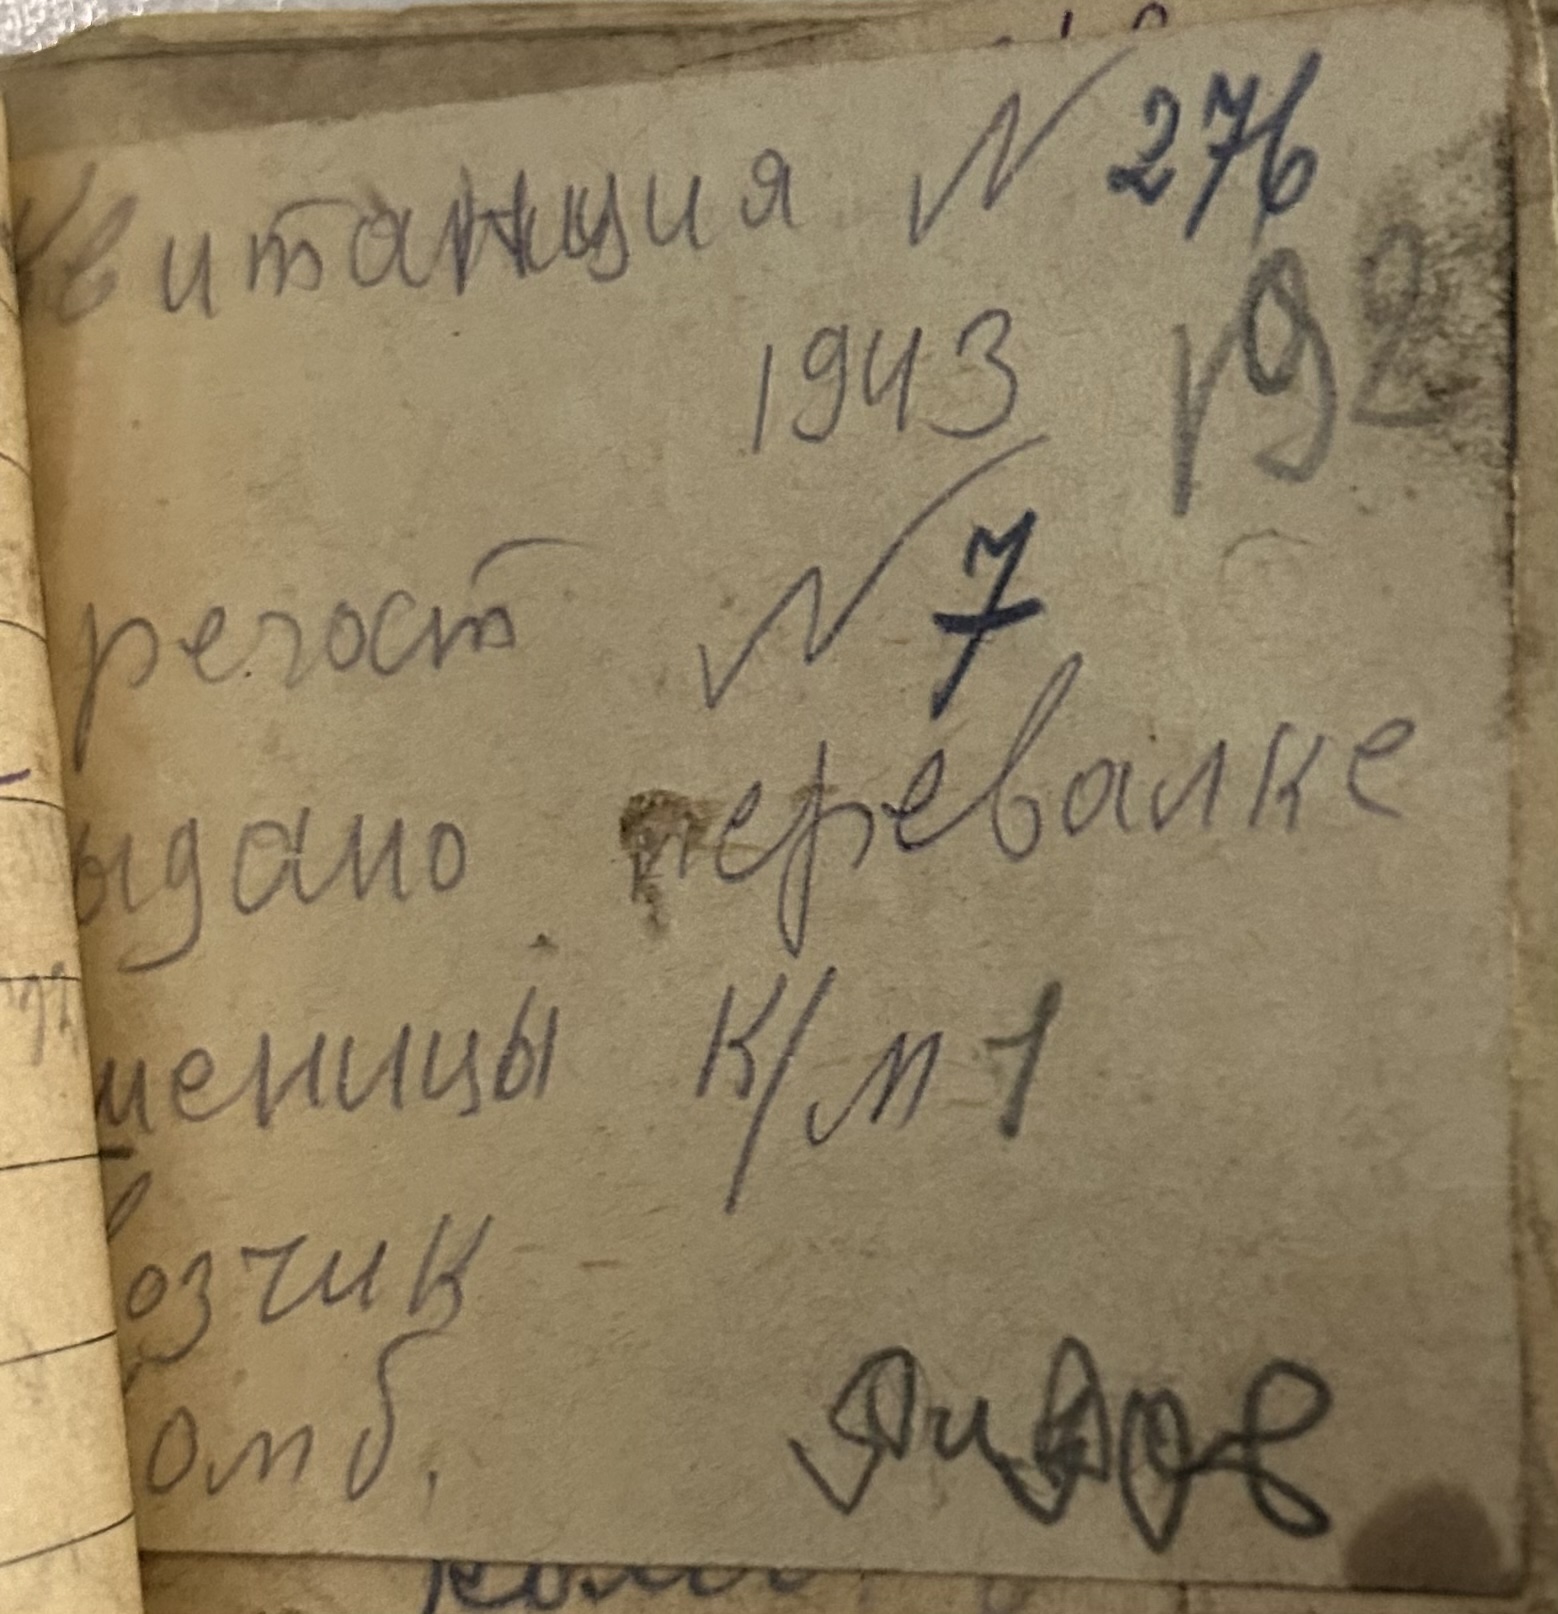 Квитанция N 276
1943 192
регост N 7
ыдано перевалке
шеницы к/м 1
возчик
омб.